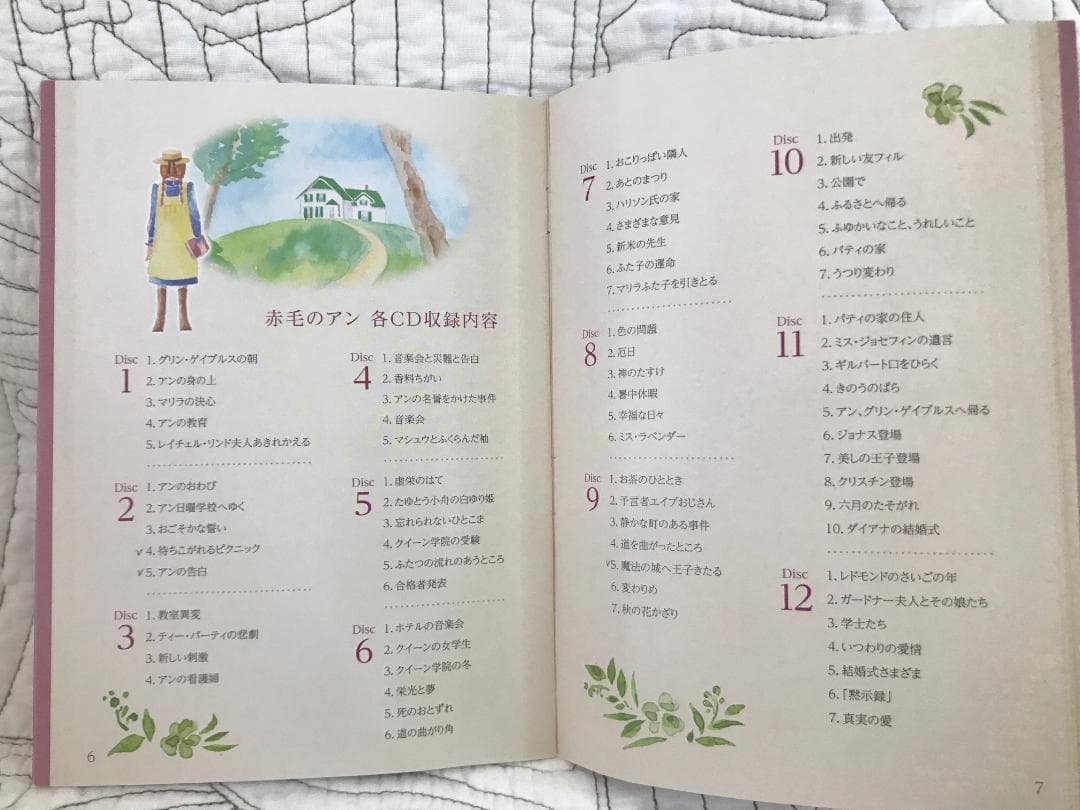 赤毛のアン 各CD収録内容
Disc 1
1. グリン・ゲイブルスの朝
2. アンの身の上
3. マリラの決心
4. アンの教育
5. レイチェル・リンド夫人あきれかえる
Disc 2
1. アンのおわび
2. アン日曜学校へゆく
3. おごそかな誓い
✓4. 待ちこがれるピクニック
✓5. アンの告白
Disc 3
1. 教室異変
2. ティー・パーティの悲劇
3. 新しい刺激
4. アンの看護婦
Disc 4
1. 音楽会と災難と告白
2. 香料ちがい
3. アンの名誉をかけた事件
4. 音楽会
5. マシュウとふくらんだ袖
Disc 5
1. 虚栄のはて
2. たゆとう小舟の白ゆり姫
3. 忘れられないひとこま
4. クイーン学院の受験
5. ふたつの流れのあうところ
6. 合格者発表
Disc 6
1. ホテルの音楽会
2. クイーンの女学生
3. クイーン学院の冬
4. 栄光と夢
5. 死のおとずれ
6. 道の曲がり角
6
Disc 7
1. おこりっぽい隣人
2. あとのまつり
3. ハリソン氏の家
4. さまざまな意見
5. 新米の先生
6. ふた子の運命
7. マリラふた子を引きとる
Disc 8
1. 色の問題
2. 厄日
3. 神のたすけ
4. 暑中休暇
5. 幸福な日々
6. ミス・ラベンダー
Disc 9
1. お茶のひととき
2. 予言者エイブおじさん
3. 静かな町のある事件
4. 道を曲がったところ
✓5. 魔法の城へ王子きたる
6. 変わりめ
7. 秋の花かざり
Disc 10
1. 出発
2. 新しい友フィル
3. 公園で
4. ふるさとへ帰る
5. ふゆかいなこと、うれしいこと
6. パティの家
7. うつり変わり
Disc 11
1. パティの家の住人
2. ミス・ジョセフィンの遺言
3. ギルバート口をひらく
4. きのうのばら
5. アン、グリン・ゲイブルスへ帰る
6. ジョナス登場
7. 美しの王子登場
8. クリスチン登場
9. 六月のたそがれ
10. ダイアナの結婚式
Disc 12
1. レドモンドのさいごの年
2. ガードナー夫人とその娘たち
3. 学士たち
4. いつわりの愛情
5. 結婚式さまざま
6. 「黙示録」
7. 真実の愛
7